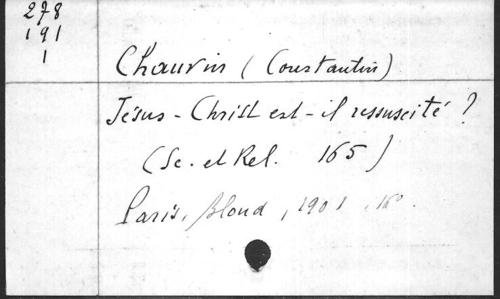 278
191
1
Chauvin (Constantin)
Jésus-Christ est-il ressuscité ?
(Sc. et Rel. 165)
Paris, Bloud, 1901, 16°.